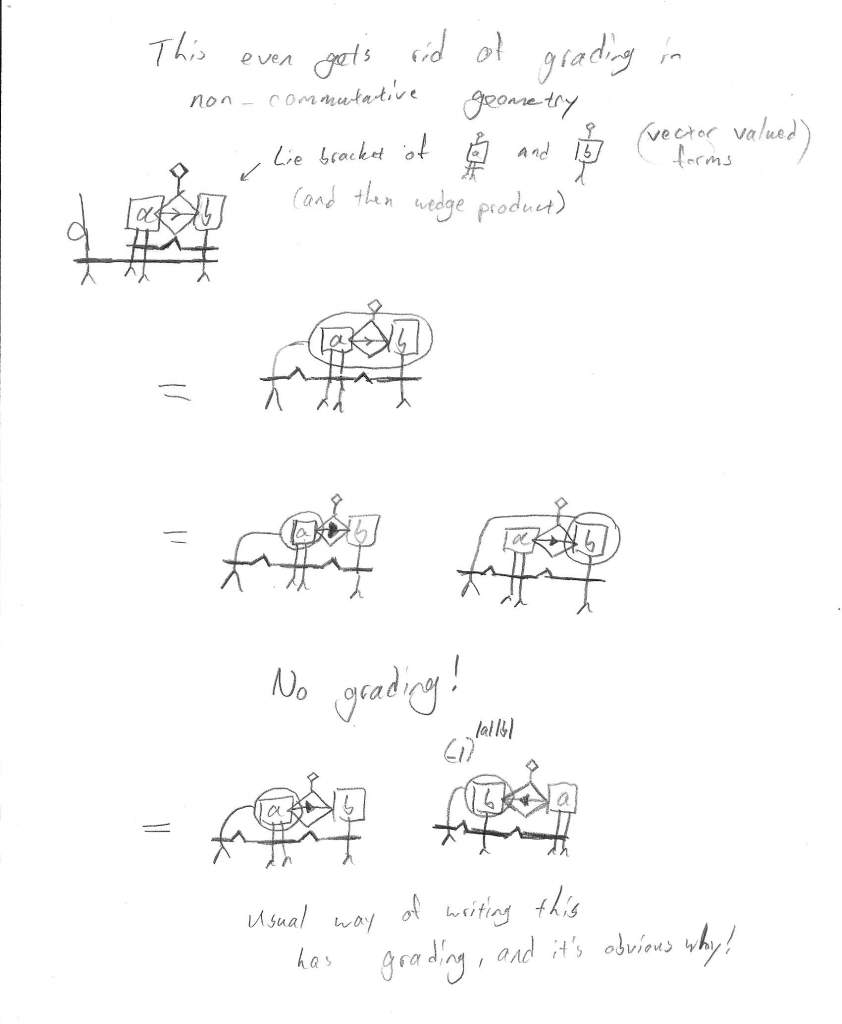 This even gets rid of grading in
non-commutative geometry
Lie bracket of a and b (vector valued)
forms
(and then wedge product)
d a b
= a b
= a b a b
No grading!
(-1)^|a||b|
= a b b a
Usual way of writing this
has grading, and it's obvious why!